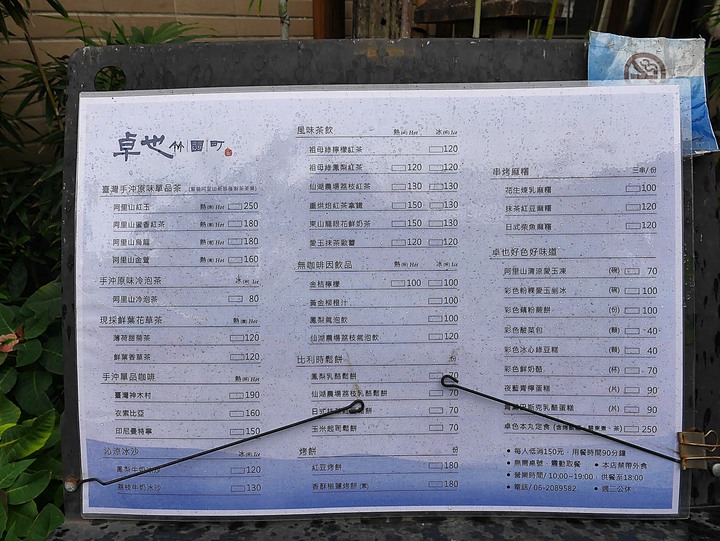 卓也 竹園町
臺灣手沖原味單品茶
熱(杯) Hot
阿里山紅玉 250
阿里山蜜香紅茶 180
阿里山烏龍 180
阿里山金萱 160
手沖原味冷泡茶 冰(杯) Ice
阿里山冷泡茶 80
現採鮮葉花草茶 熱(壺) Hot
薄荷甜菊茶 120
鮮葉香草茶 120
手沖單品咖啡 熱(杯) Hot
臺灣神木村 190
衣索比亞 160
印尼曼特寧 150
沁涼冰沙 冰(杯) Ice
鳳梨牛奶冰沙 120
荔枝牛奶冰沙 130
風味茶飲 熱(杯) Hot 冰(杯) Ice
祖母綠檸檬紅茶 120
祖母綠鳳梨紅茶 120 120
仙湖農場荔枝紅茶 130 130
重烘焙紅茶拿鐵 150 150
東山龍眼花鮮奶茶 150 130
愛玉抹茶歐蕾 120 120
無咖啡因飲品 熱(杯) Hot 冰(杯) Ice
金桔檸檬 100 100
黃金柳橙汁 100
鳳梨氣泡飲 100
仙湖農場荔枝氣泡飲 120
比利時鬆餅 份
鳳梨乳酪鬆餅 70
仙湖農場荔枝乳酪鬆餅 70
70
玉米起司鬆餅 70
烤餅 份
紅豆烤餅 180
香酥椒鹽烤餅(素) 180
串烤麻糬 三串/份
花生煉乳麻糬 100
抹茶紅豆麻糬 120
日式柴魚麻糬 120
卓也好色好味道
阿里山清涼愛玉凍 (碗) 70
彩色粉粿愛玉剉冰 (碗) 100
彩色鑲粉蕨餅 (份) 100
彩色酸菜包 (顆) 40
彩色冰心綠豆糕 (顆) 40
彩色鮮奶酪 (杯) 70
夜藍青檸蛋糕 (片) 90
巴斯克乳酪蛋糕 (片) 90
卓色本丸定食 250
• 每人低消150元，用餐時間90分鐘
• 無需桌號、震動取餐 • 本店禁帶外食
• 營業時間/ 10:00~19:00，供餐至18:00
• 電話/ 06-2089582 • 週二公休